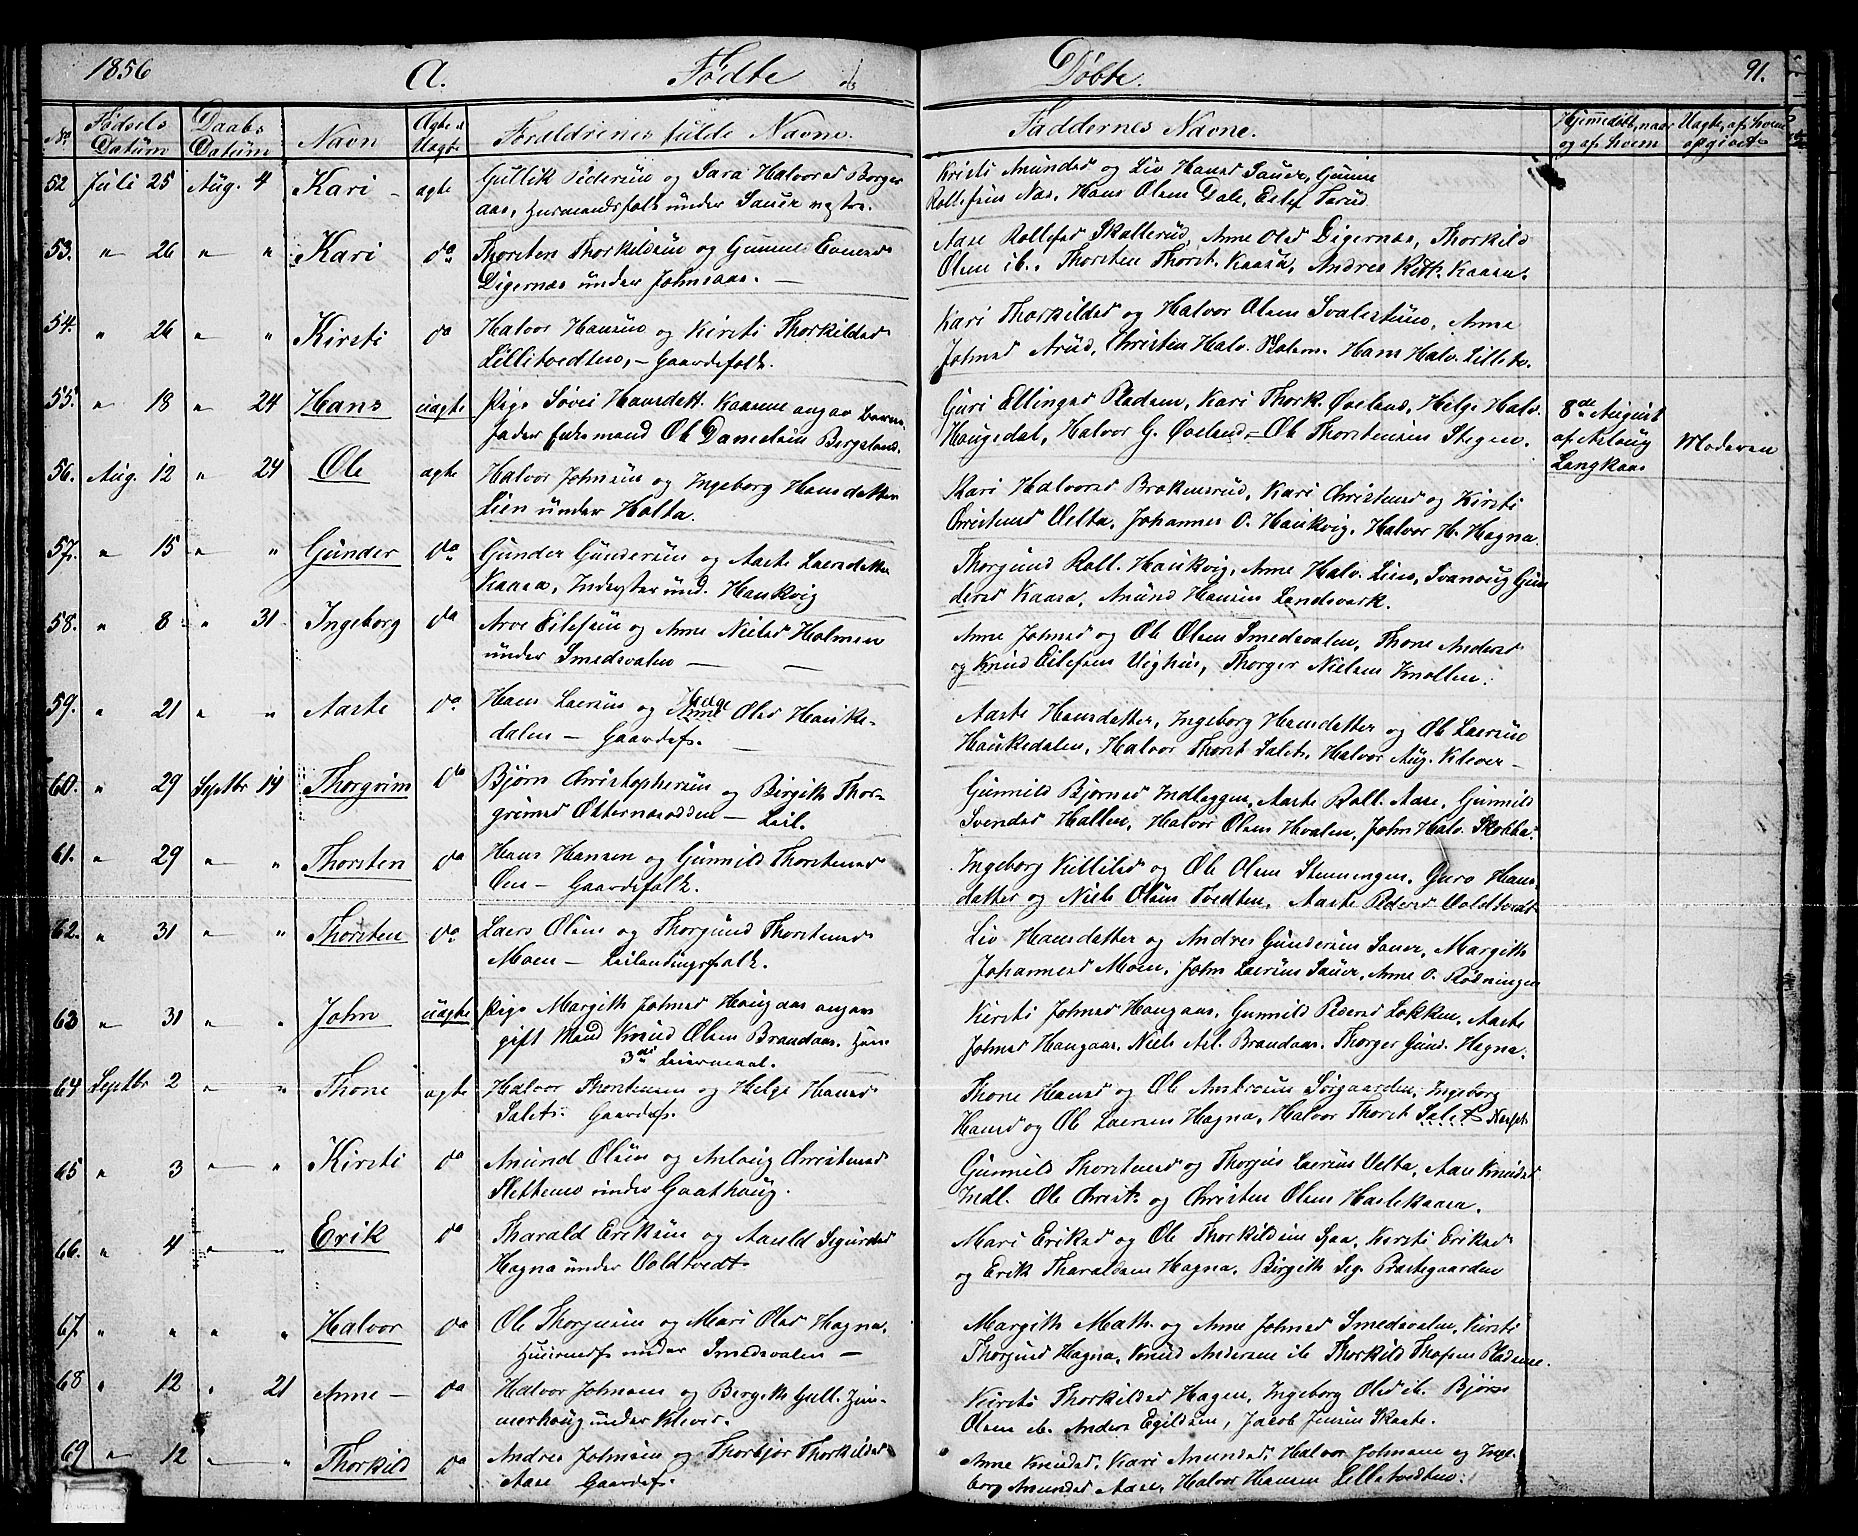 1856 A. Fødte og Døbte. 91.
No. Fødsels Datum Daabs Datum Navn Ægte el. Uægte Forældrenes fulde Navne. Faddernes Navne. Hjemedøbt, naar og af hvem Uægte, af hvem opgivet
52 Juli 25 Aug. 4 Kari – ægte Gullik Pedersen og Sara Halvorsd Borger Kirsti Amundsd og Liv Hansd Sauer, Gunne
aas, Huusmandsfolk under Sauer Rollefsen Næs, Hans Olsen Dale, Eilef
53. " 26 " " Kari do Thorsten Thorkildsen og Gunnild Evensd Aase Rollefsd Skallerud, Anne Olsd Digernæs, Thorkild
Digernæs under Johnsaas. – Olsen ib., Thorsten Thorst. Kaasa, Andres Kaasa.
54. " 26 " " Kirsti do Halvor Hansen og Kirsti Thorkildsd Kari Thorkildsd og Halvor Olsen Svalestuen, Anne
Lilletvedten, – Gaardefolk. Johnsd Arud, Christen Halv. Holem. Hans Halv. Lilletv.
55. " 18 " 24 Hans uægte Pige Søvei Hansdatt. Kaasene angav Barne- Guri Ellingsd Pladsen, Kari Thork. Øveland, Helge Halv. 8de August
fader Enkemand Ole Danielsen Bergeland. Haugedal, Halvor G. Øveland, – Ole Thorstensen Stegen. af Aslaug Moderen
Langkaas
56. Aug. 12 " 24 Ole ægte Halvor Johnsen og Ingeborg Hansdatter Kari Halvorsd Brakensrud, Kari Christensd og Kirsti
Lien under Holta. Christensd Velta, Johannes O. Haukvig, Halvor H. Hagna.
57. " 15 " " Gunder do Gunder Gundersen og Aaste Laersdatter Thorgund Roll. Haukvig, Anne Halv. Lien, Svanoug Gun
Kaasa, Inderster und. Haukvig dersd Kaasa, Amund Hansen Landsverk.
58. " 8 " 31 Ingeborg do Arve Eilefsen og Anne Nielsd Holmen Anne Johnsd og Ole Olsen Smedsvalen, Thone Andersd
under Smedsvalen – – og Knud Eilefsen Vighus, Thorger Nielsen Knollen.
59. " 21 " " Aaste do Hans Laersen og Helge Anne Olsd Hauke- Aaste Hansdatter, Ingeborg Hansdatter og Ole Laersen
dalen – Gaardefs. – Haukedalen, Halvor Thorst Salet, Halvor Aug. Klever –
60. " 29 Septbr 14 Thorgrim do Bjørn Christophersen og Birgith Thor- Gunnild Bjørnsd Indleggen, Aaste Roll. Aase, Gunnild
grimsd Otternæsodden – Leil. Svendsd Hallen, Halvor Olsen Hvalen, John Halv. Skobba.
61. " 29 " " Thorsten do Hans Hansen og Gunnild Thorstensd Ingeborg Killilsd og Ole Olsen Stenningen, Guro Hans-
Øen – Gaardefolk. datter og Niels Olsen Tvedten, Aaste Pedersd Voldtvedt
62. " 31 " " Thorsten do Laers Olsen og Thorgund Thorstensd Liv Hansdatter og Andres Gundersen Sauer, Margith
Moen – Leilændingsfolk. Johannesd Moen, John Laersen Sauer, Anne O. Rødningen
63 " 31 " " John uægte Pige Margith Johnsd Haugaas angav Kirsti Johnsd Haugaas, Gunnild Pedersd Løkken, Aaste
gift Mand Knud Olsen Brandaas. Hun- Johnsd Haugaas, Niels Asl. Brandaas, Thorger Gund. Hegna.
3die Leiermaal.
64 Septbr 2 " " Thone ægte Halvor Thorstensen og Helge Hansd Thone Hansd og Ole Ambrosen Sørgaarden, Ingeborg
Salet. Gaardefs. Hansd og Ole Laersen Hagna, Halvor Thorst Salet
65 " 3 " " Kirsti do Amund Olsen og Aslaug Christensd Gunnild Thorstensd og Thorjus Laersen Velta, Aase Knudsd
Slettemo under Gaathoug. Indl. Ole Christ. og Christen Olsen Haslekaasa.
66. " 4 " " Erik do Tharald Eriksen og Aasild Sigurdsd Mari Eriksd og Ole Thorkildsen Sjaa, Kirsti Eriksd
Hagna under Voldtvedt. og Erik Tharaldsen Hagna, Birgith Sig. Prestegaarden
67. " " " " Halvor do Ole Thorjusen og Mari Olsd Hagna, Margith Math. og Anne Johnsd Smedsvalen, Kirsti
under Smedsvalen – Thorgund Hagna, Knud Andersen ib Thorkild Pladsene.
68 " 12 " 21 Anne – do Halvor Johnsen og Bergith Gull. Him- Kirsti Thorkildsd Hagen, Ingeborg Olsd ib. Bjørn
merhoug under Klever. Olsen ib. Anders Egildsen, Jacob Jensen Skaate.
69 " 12 " " Thorkild do Andres Johnsen og Thorbjør Thorkildsd Anne Knudsd, Kari Amundsd, Halvor Johnsen og Inge-
Aase Gaardefs. borg Amundsd Aase, Halvor Hansen Lilletvedten.